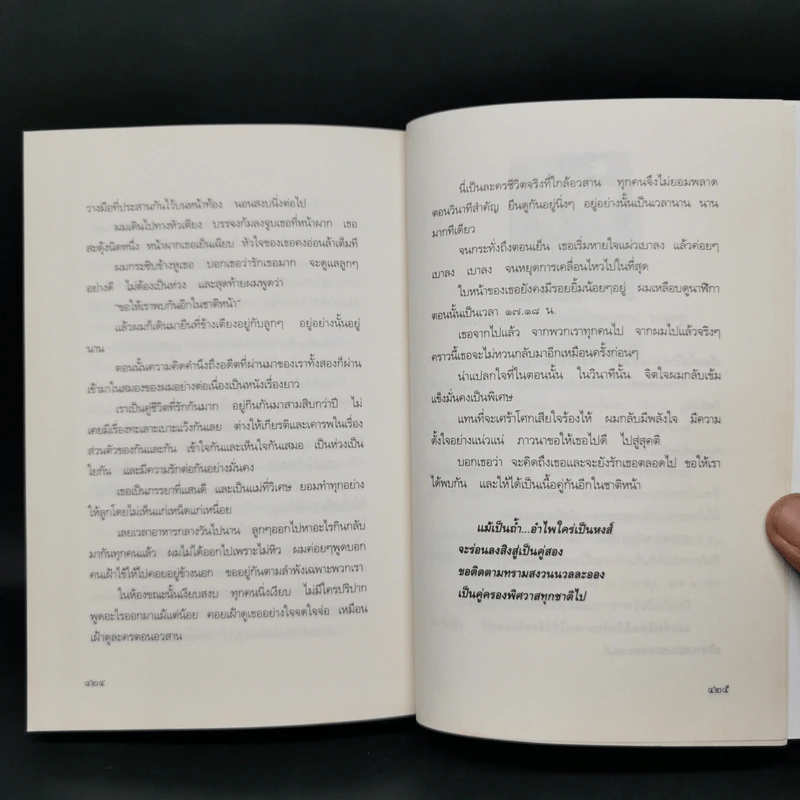 วางมือที่ประสานกันไว้บนหน้าท้อง นอนสงบนิ่งต่อไป
ผมเดินไปทางหัวเตียง บรรจงก้มลงจูบเธอที่หน้าผาก เธอ
สะดุ้งนิดหนึ่ง หน้าผากเธอเย็นเฉียบ หัวใจของเธอคงอ่อนล้าเต็มที
ผมกระซิบข้างหูเธอ บอกเธอว่ารักเธอมาก จะดูแลลูกๆ
อย่างดี ไม่ต้องเป็นห่วง และสุดท้ายผมพูดว่า
“ขอให้เราพบกันอีกในชาติหน้า”
แล้วผมก็เดินมายืนที่ข้างเตียงอยู่กับลูกๆ อยู่อย่างนั้นอยู่
นาน
ตอนนั้นความคิดคำนึงถึงอดีตที่ผ่านมาของเราทั้งสองก็ผ่าน
เข้ามาในสมองของผมอย่างต่อเนื่องเป็นหนังเรื่องยาว
เราเป็นคู่ชีวิตที่รักกันมาก อยู่กินกันมาสามสิบกว่าปี ไม่
เคยมีเรื่องทะเลาะเบาะแว้งกันเลย ต่างให้เกียรติและเคารพในเรื่อง
ส่วนตัวของกันและกัน เข้าใจกันและเห็นใจกันเสมอ เป็นห่วงเป็น
ใยกัน และมีความรักต่อกันอย่างมั่นคง
เธอเป็นภรรยาที่แสนดี และเป็นแม่ที่วิเศษ ยอมทำทุกอย่าง
ให้ลูกโดยไม่เห็นแก่เหน็ดแก่เหนื่อย
เลยเวลาอาหารกลางวันไปนาน ลูกๆออกไปหาอะไรกินกลับ
มากันทุกคนแล้ว ผมไม่ได้ออกไปเพราะไม่หิว ผมค่อยๆพูดบอก
คนเฝ้าไข้ให้ไปคอยอยู่ข้างนอก ขออยู่กันตามลำพังเฉพาะพวกเรา
ในห้องขณะนั้นเงียบสงบ ทุกคนนิ่งเงียบ ไม่มีใครปริปาก
พูดอะไรออกมาแม้แต่น้อย คอยเฝ้าดูเธออย่างใจจดใจจ่อ เหมือน
เฝ้าดูละครตอนอวสาน
๔๒๔
นี่เป็นละครชีวิตจริงที่ใกล้อวสาน ทุกคนจึงไม่ยอมพลาด
ตอนวินาทีสำคัญ ยืนดูกันอยู่นิ่งๆ อยู่อย่างนั้นเป็นเวลานาน นาน
มากทีเดียว
จนกระทั่งถึงตอนเย็น เธอเริ่มหายใจแผ่วเบาลง แล้วค่อยๆ
เบาลง เบาลง จนหยุดการเคลื่อนไหวไปในที่สุด
ใบหน้าของเธอยังคงมีรอยยิ้มน้อยๆอยู่ ผมเหลือบดูนาฬิกา
ตอนนั้นเป็นเวลา ๑๗.๑๘ น.
เธอจากไปแล้ว จากพวกเราทุกคนไป จากผมไปแล้วจริงๆ
คราวนี้เธอจะไม่หวนกลับมาอีกเหมือนครั้งก่อนๆ
น่าแปลกใจที่ในตอนนั้น ในวินาทีนั้น จิตใจผมกลับเข้ม
แข็งมั่นคงเป็นพิเศษ
แทนที่จะเศร้าโศกเสียใจร้องไห้ ผมกลับมีพลังใจ มีความ
ตั้งใจอย่างแน่วแน่ ภาวนาขอให้เธอไปดี ไปสู่สุคติ
บอกเธอว่า จะคิดถึงเธอและจะยังรักเธอตลอดไป ขอให้เรา
ได้พบกัน และให้ได้เป็นเนื้อคู่กันอีกในชาติหน้า
แม้เป็นถ้ำ...อำไพใคร่เป็นหงส์
จะร่อนลงสิงสู่เป็นคู่สอง
ขอติดตามทรามสงวนนวลละออง
เป็นคู่ครองพิศวาสทุกชาติไป
๔๒๕